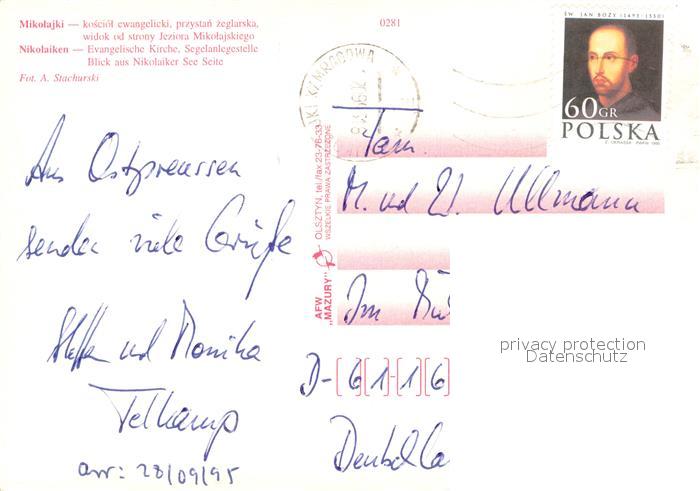 Mikołajki — kościół ewangelicki, przystań żeglarska,
widok od strony Jeziora Mikołajskiego
Nikolaiken — Evangelische Kirche, Segelanlegestelle
Blick aus Nikolaiker See Seite
Fot. A. Stachurski
0281
ŚW. JAN BOŻY (1495-1550)
60GR
POLSKA
Aus Ostpreussen
senden viele Grüße
Steffen und Monika
Telkamp
arr: 28/09/95
AFW
„MAZURY"
OLSZTYN, tel./fax 23-76-33
WSZELKIE PRAWA ZASTRZEŻONE
Fam.
M. und W. Ullmann
Im
D-61116
privacy protection
Datenschutz